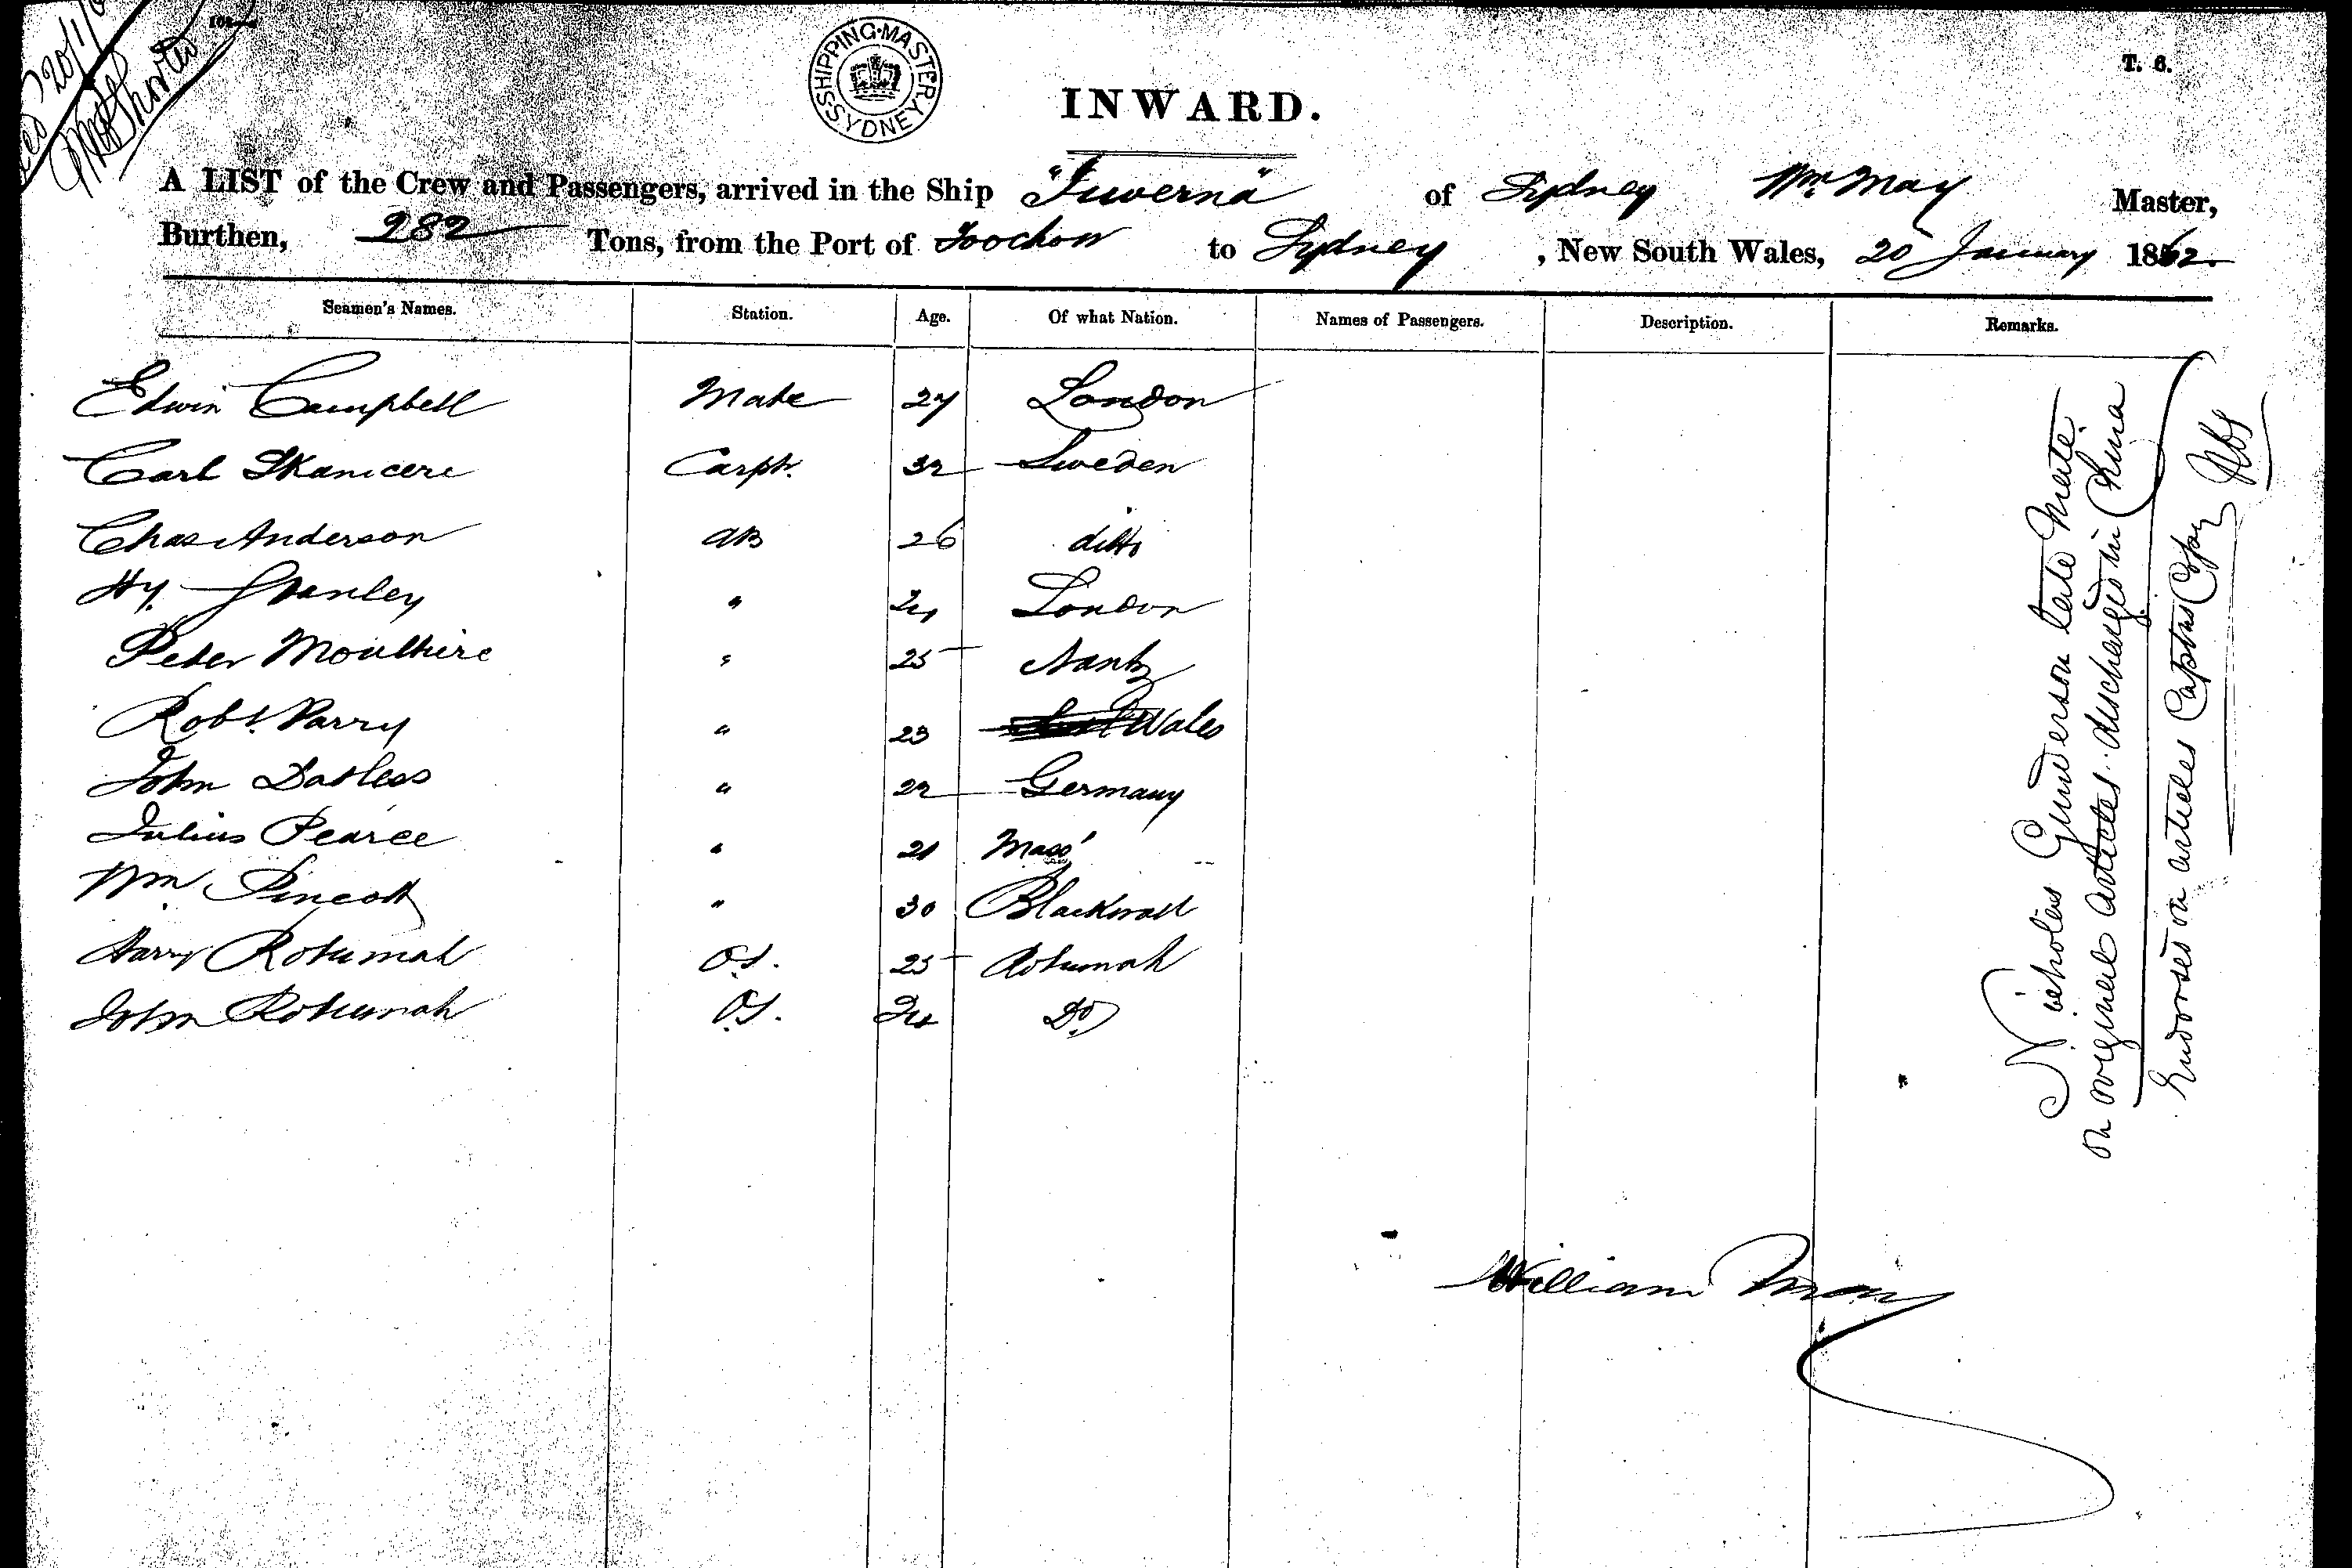 SHIPPING·MASTER·SYDNEY
T. 6.
INWARD.
A LIST of the Crew and Passengers, arrived in the Ship "Juverna" of Sydney Wm. May Master,
Burthen, 282 Tons, from the Port of Foochow to Sydney, New South Wales, 20 January 1862.
Seamen's Names. Station. Age. Of what Nation. Names of Passengers. Description. Remarks.
Edwin Campbell Mate 27 London
Carl Carptr. 32 Sweden
Chas Anderson AB 26 ditto
Hy. Stanley " 24 London
Peter " 25 Nantz
Robt. Parry " 23 Wales
John " 22 Germany
Julius Pearce " 21 Mass'
Wm Pincott " 30 Blackwall
Harry Rotumah O.S. 25 Rotumah
John Rotumah O.S. 24 Do
Nicholas Gunderson late Mate
on original articles discharged in China
Endorsed on articles Captns Copy
William May